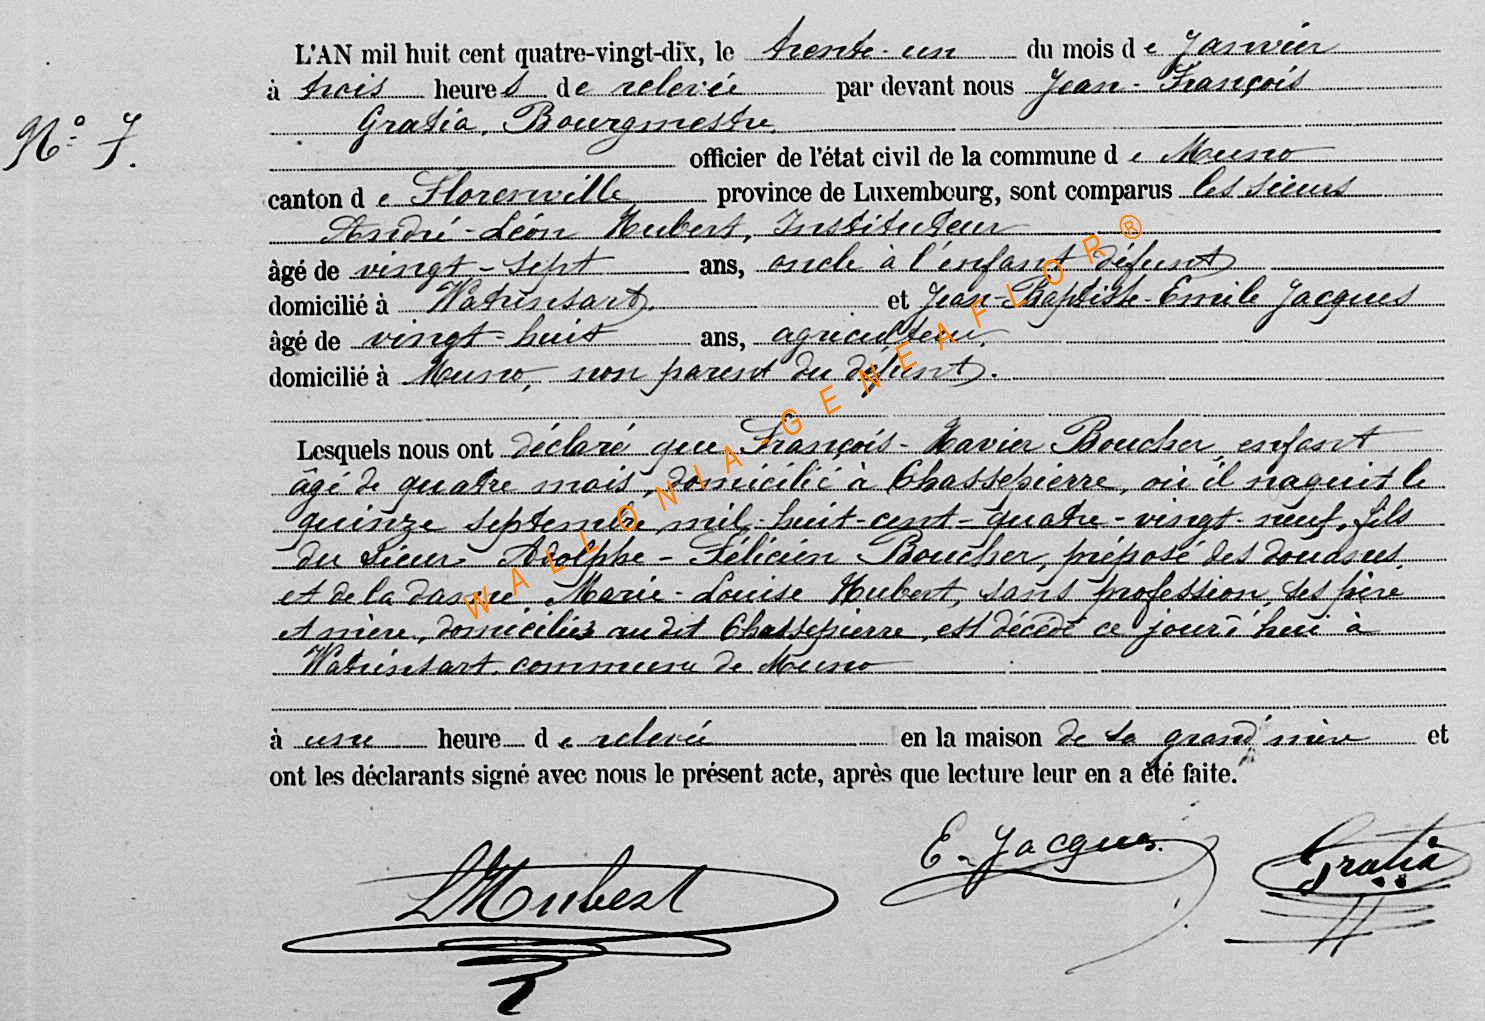 L'AN mil huit cent quatre-vingt-dix, le trente-un du mois de Janvier
à trois heures de relevée par devant nous Jean-François
Nº 7.
Gratia, Bourgmestre,
officier de l'état civil de la commune de Muno
canton de Florenville province de Luxembourg, sont comparus les sieurs
André-Léon Hubert, Instituteur
âgé de vingt-sept ans, oncle à l'enfant défunt
domicilié à Watrinsart, et Jean-Baptiste-Emile Jacques
âgé de vingt-huit ans, agriculteur,
domicilié à Muno, non parent du défunt.
Lesquels nous ont déclaré que François-Xavier Boucher, enfant
âgé de quatre mois, domicilié à Chassepierre, où il naquit le
quinze septembre mil-huit-cent-quatre-vingt-neuf, fils
du sieur Adolphe-Félicien Boucher, préposé des douanes,
et de la dame Marie-Louise Hubert, sans profession, ses père
et mère, domiciliés au dit Chassepierre, est décédé ce jourd'hui à
Watrinsart, commune de Muno
à une heure de relevée en la maison de sa grand'mère et
ont les déclarants signé avec nous le présent acte, après que lecture leur en a été faite.
E. Jacques.
Gratia
LHubert
WALLONIA-GENEAFLOR®